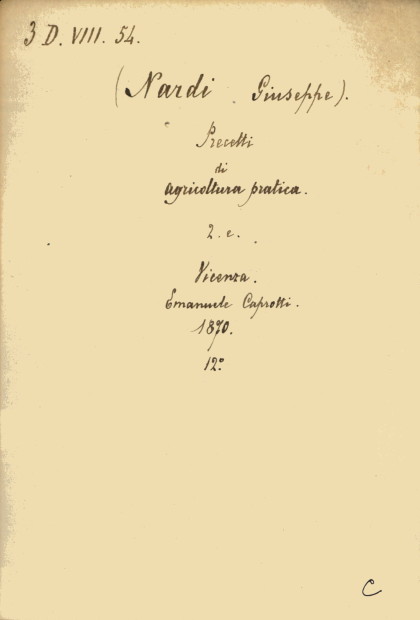 3 D. VIII. 54.
(Nardi Giuseppe).
Precetti
di
agricoltura pratica.
2. e.
Vicenza.
Emanuele Caprotti.
1870.
12°
C